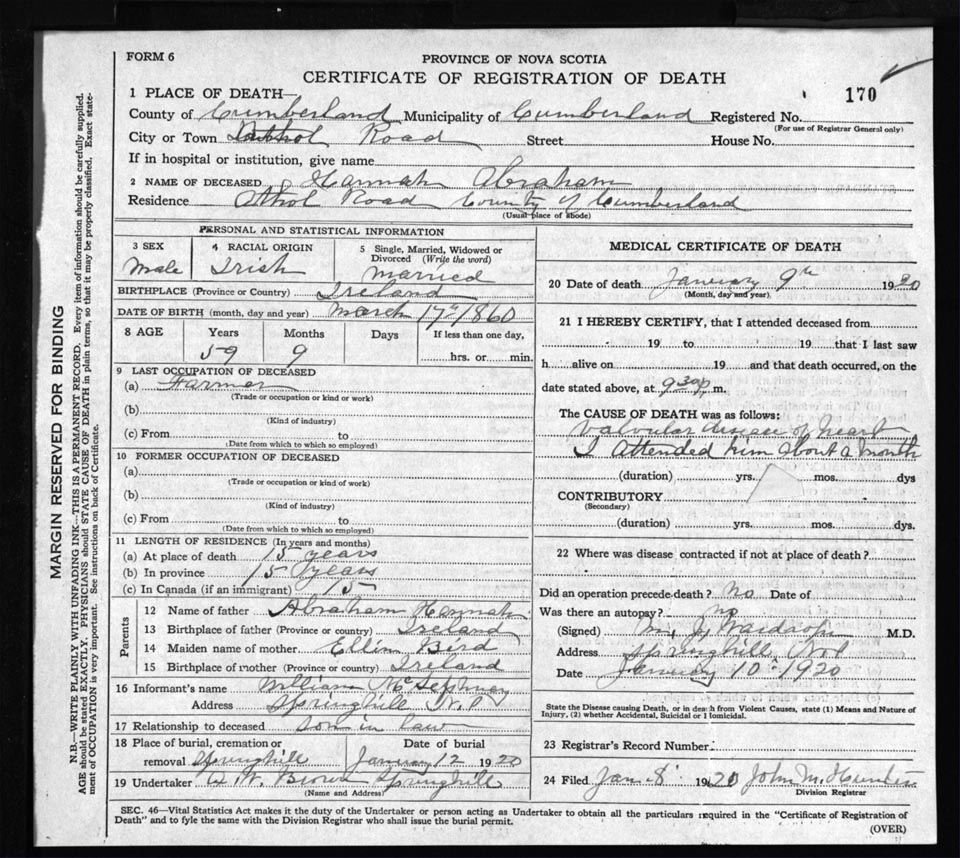 FORM 6
PROVINCE OF NOVA SCOTIA
CERTIFICATE OF REGISTRATION OF DEATH
170
1 PLACE OF DEATH—
County of Cumberland Municipality of Cumberland Registered No.
(For use of Registrar General only)
City or Town Athol Road Street House No.
If in hospital or institution, give name
2 NAME OF DECEASED Hannah Abraham
Residence Athol Road County of Cumberland
(Usual place of abode)
PERSONAL AND STATISTICAL INFORMATION
3 SEX
Male
4 RACIAL ORIGIN
Irish
5 Single, Married, Widowed or Divorced (Write the word)
Married
BIRTHPLACE (Province or Country) Ireland
DATE OF BIRTH (month, day and year) March 17 1860
8 AGE Years Months Days If less than one day,
59 9 hrs. or min.
9 LAST OCCUPATION OF DECEASED
(a) Farmer
(Trade or occupation or kind or work)
(b)
(Kind of industry)
(c) From to
(Date from which to which so employed)
10 FORMER OCCUPATION OF DECEASED
(a)
(Trade or occupation or kind of work)
(b)
(Kind of industry)
(c) From to
(Date from which to which so employed)
11 LENGTH OF RESIDENCE (In years and months)
(a) At place of death 15 years
(b) In province 15 years
(c) In Canada (if an immigrant) 15
Parents
12 Name of father Abraham Hannah
13 Birthplace of father (Province or country) Ireland
14 Maiden name of mother Ellin Bird
15 Birthplace of mother (Province or country) Ireland
16 Informant's name William
Address Springhill N.S
17 Relationship to deceased son in law
18 Place of burial, cremation or removal Springhill
Date of burial January 12 1920
19 Undertaker W. Brown Springhill
(Name and Address)
MEDICAL CERTIFICATE OF DEATH
20 Date of death January 9th 1920
(Month, day and year)
21 I HEREBY CERTIFY, that I attended deceased from
19 to 19 that I last saw
h alive on 19 and that death occurred, on the
date stated above, at 9 30 p. m.
The CAUSE OF DEATH was as follows:
Valvular disease of heart
I attended him about a month
(duration) yrs. mos. dys
CONTRIBUTORY
(Secondary)
(duration) yrs. mos. dys.
22 Where was disease contracted if not at place of death?
Did an operation precede death? no Date of
Was there an autopsy? no
(Signed) M. J. M.D.
Address Springhill, N.S
Date January 10 1920
State the Disease causing Death, or in death from Violent Causes, state (1) Means and Nature of
Injury, (2) whether Accidental, Suicidal or Homicidal.
23 Registrar's Record Number
24 Filed Jan 8 1920 John M. Hunter
Division Registrar
SEC. 46—Vital Statistics Act makes it the duty of the Undertaker or person acting as Undertaker to obtain all the particulars required in the "Certificate of Registration of
Death" and to fyle the same with the Division Registrar who shall issue the burial permit.
(OVER)
MARGIN RESERVED FOR BINDING
N.B.—WRITE PLAINLY WITH UNFADING INK—THIS IS A PERMANENT RECORD. Every item of information should be carefully supplied.
AGE should be stated EXACTLY. PHYSICIANS should STATE CAUSE OF DEATH in plain terms, so that it may be properly classified. Exact state-
ment of OCCUPATION is very important. See instructions on back of Certificate.